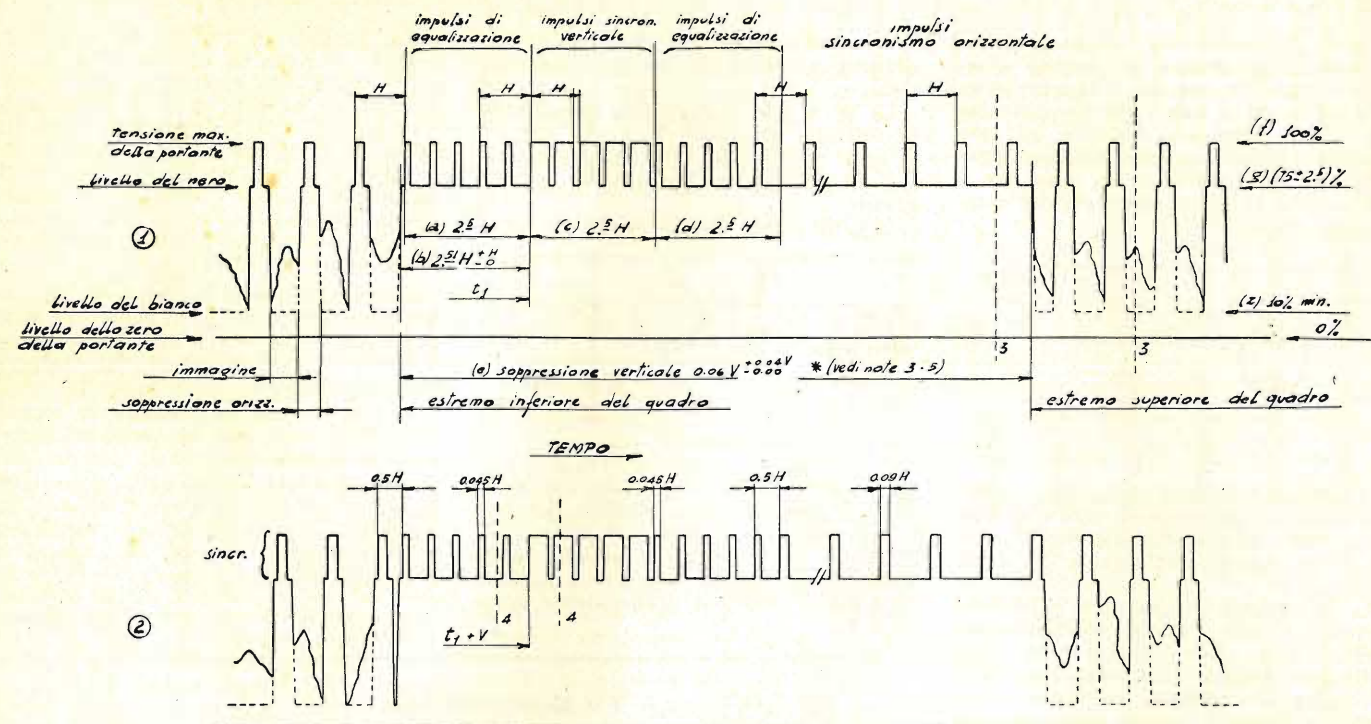 impulsi di
equalizzazione
impulsi sincron.
verticale
impulsi di
equalizzazione
impulsi
sincronismo orizzontale
H
H
H
H
H
tensione max.
della portante
(f) 100%
livello del nero
(g) (75 ± 2.5)%
1
(a) 2.5 H
(c) 2.5 H
(d) 2.5 H
(b) 2.51 H +H -0
t1
livello del bianco
(z) 10% min.
livello dello zero
della portante
0%
3
3
immagine
(e) soppressione verticale 0.06 V +0.04V -0.00 * (vedi note 3-5)
soppressione orizz.
estremo inferiore del quadro
estremo superiore del quadro
TEMPO
0.5H
0.045H
0.045H
0.5H
0.09H
sincr.
4
4
2
t1 + V